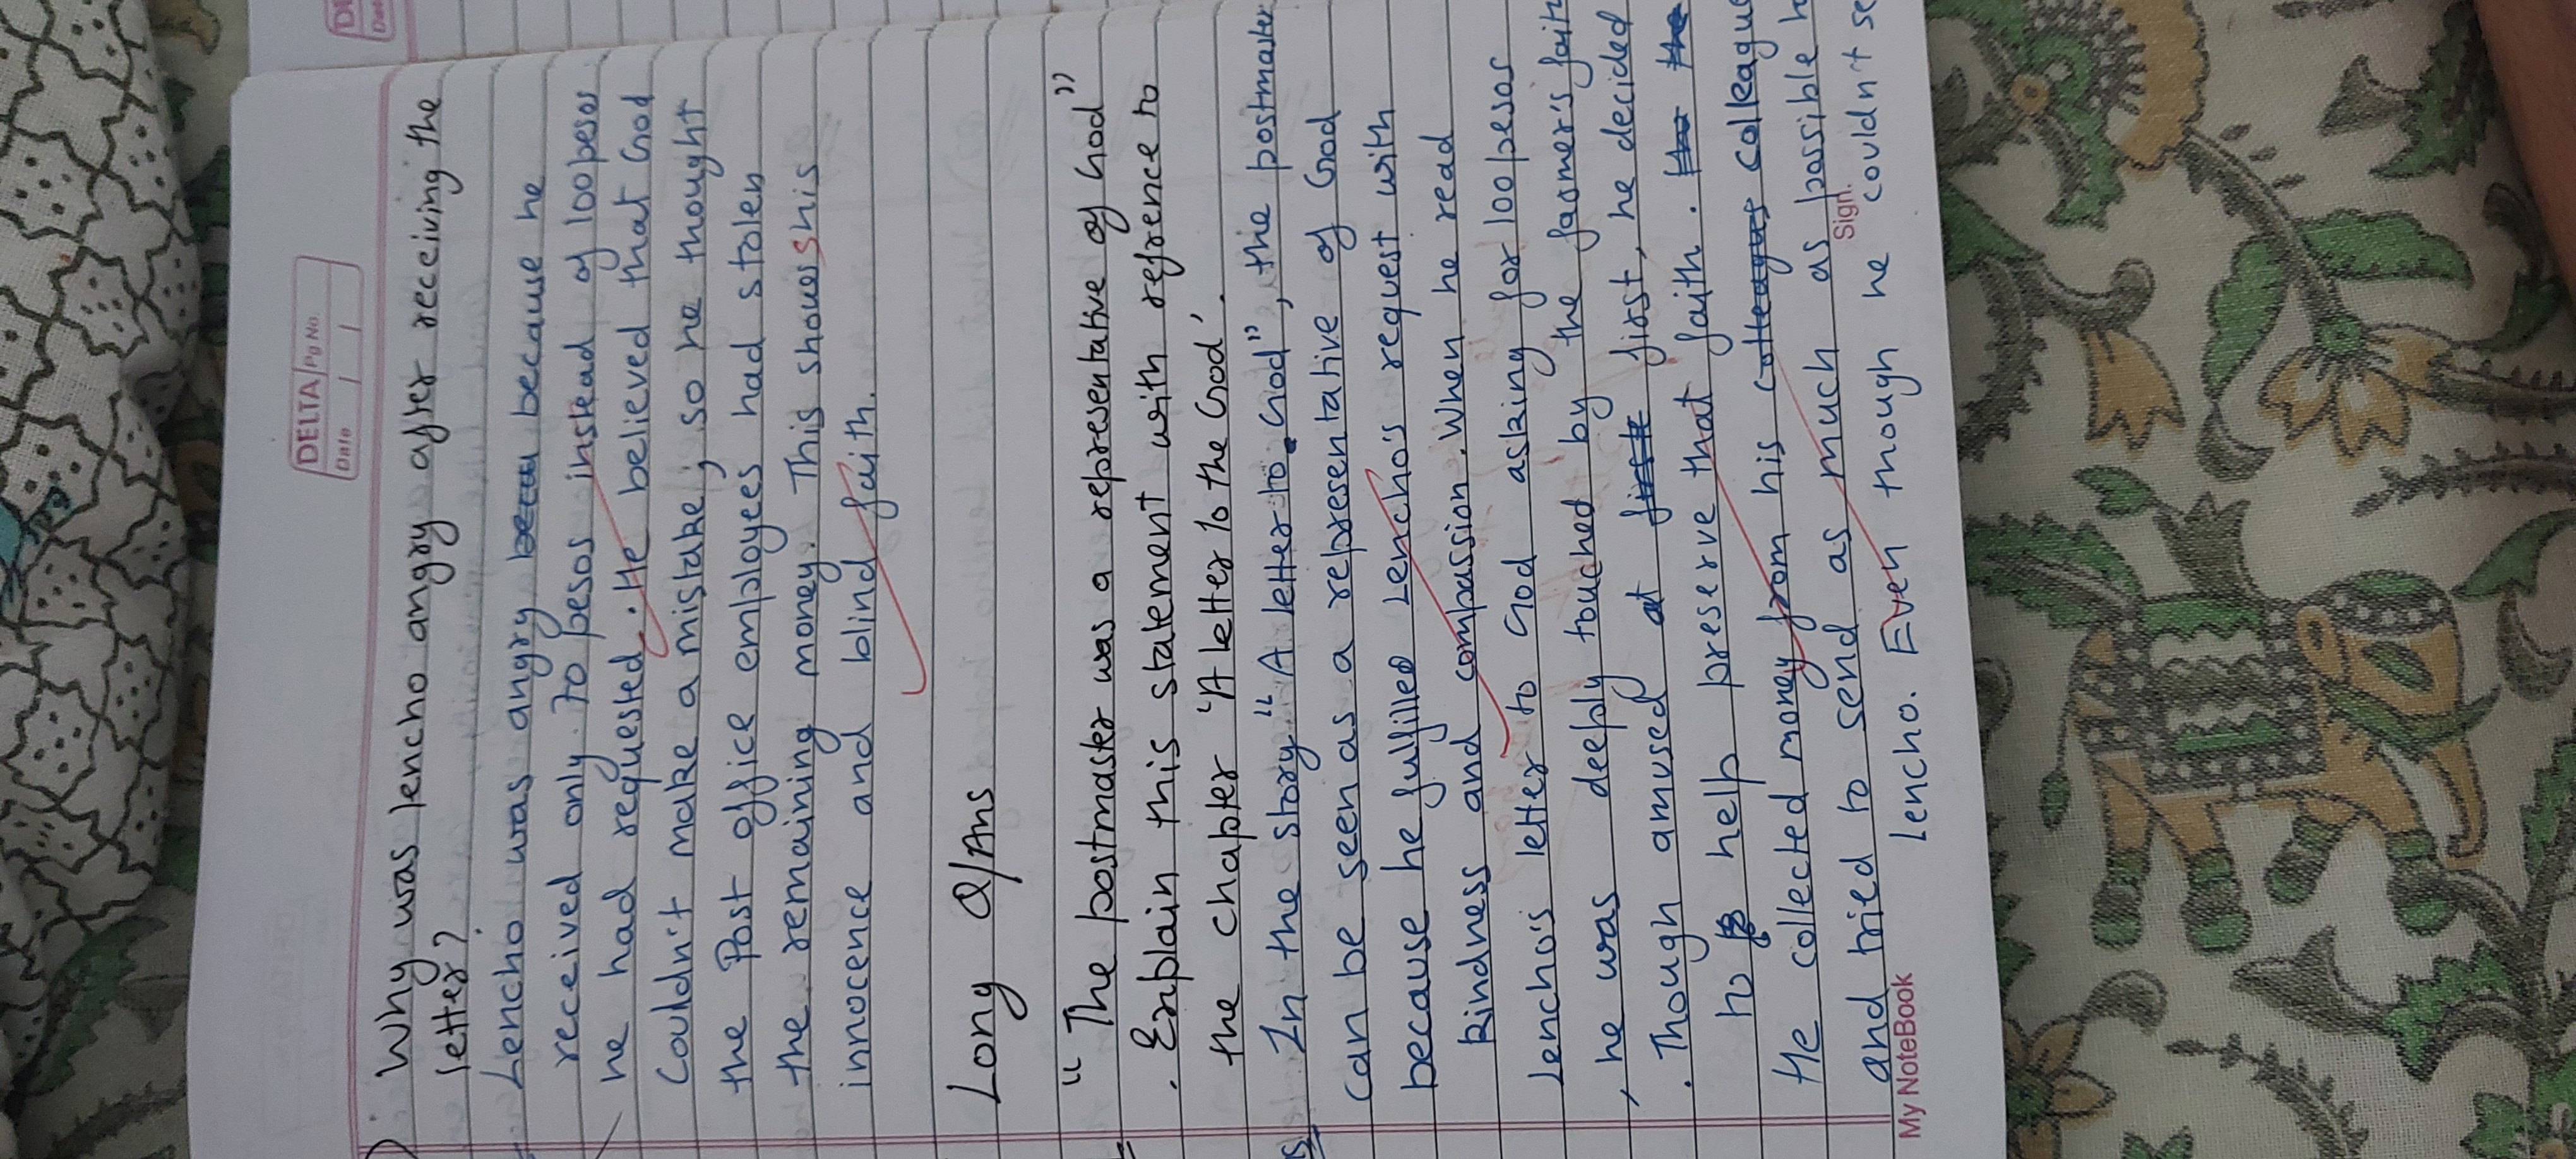 DELTA Pg No.
Date / /
Why was lencho angry after receiving the
letter?
Lencho was angry because he
received only 70 pesos instead of 100 pesos
he had requested. He believed that God
Couldn't make a mistake, so he thought
the Post office employees had stolen
the remaining money. This shows his
innocence and blind faith.
Long Q/Ans
"The postmaster was a representative of God"
. Explain this statement with refrence to
the chapter 'A letter to the God'.
In the story "A letter to God", the postmaster
can be seen as a representative of God
because he fulfilled Lencho's request with
kindness and compassion. When he read
lencho's letter to God asking for 100 pesos
, he was deeply touched by the farmer's faith
. Though amused at first, he decided
to help preserve that faith.
He collected money from his colleague
and tried to send as much as possible
lencho. Even though he couldn't
My NoteBook
Sign.